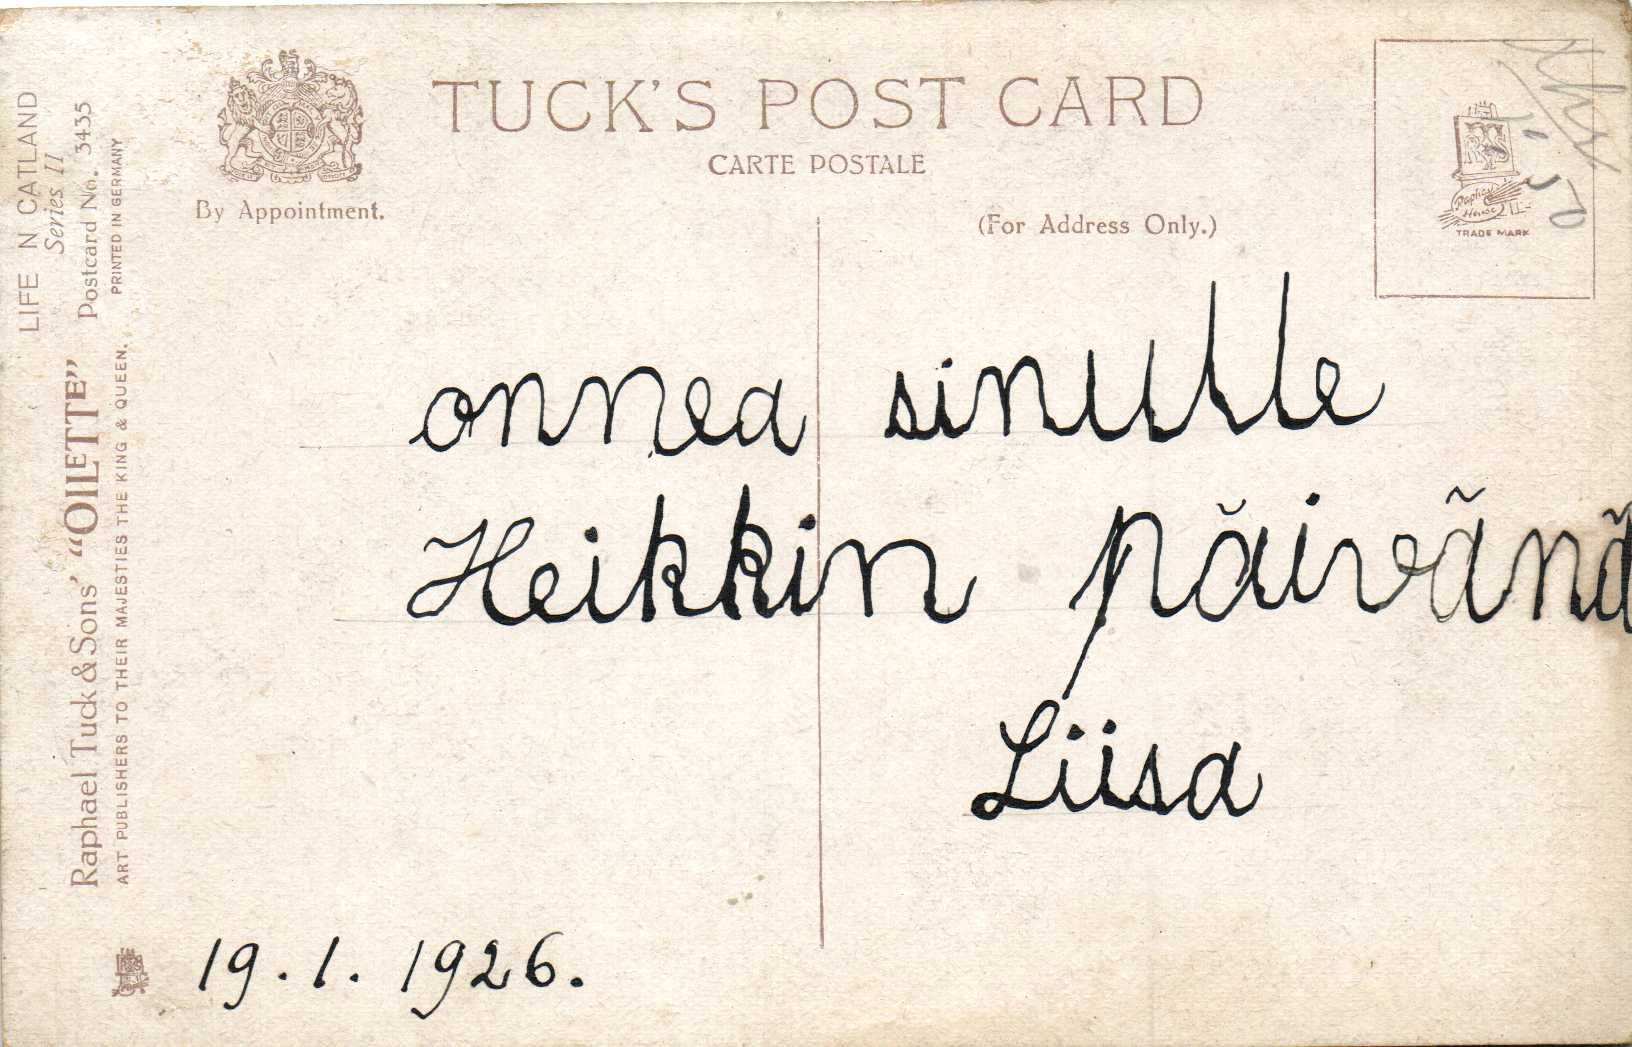 TUCK'S POST CARD
CARTE POSTALE
By Appointment.
(For Address Only.)
TRADE MARK
LIFE IN CATLAND
Series II
Postcard No. 3455
PRINTED IN GERMANY
Raphael Tuck & Sons' "OILETTE"
ART PUBLISHERS TO THEIR MAJESTIES THE KING & QUEEN.
Raphael
House
onnea sinulle
Heikkin päivänä
Liisa
19.1.1926.